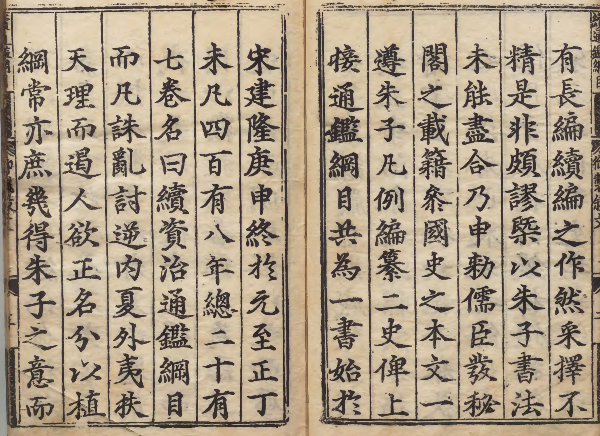 有長編續編之作然采擇不
精是非頗謬槩以朱子書法
未能盡合乃申勑儒臣發秘
閣之載籍叅國史之本文一
遵朱子凡例編纂二史俾上
接通鑑綱目共為一書始於
宋建隆庚申終於元至正丁
未凡四百有八年總二十有
七卷名曰續資治通鑑綱目
而凡誅亂討逆内夏外夷扶
天理而遏人欲正名分以植
綱常亦庶幾得朱子之意而